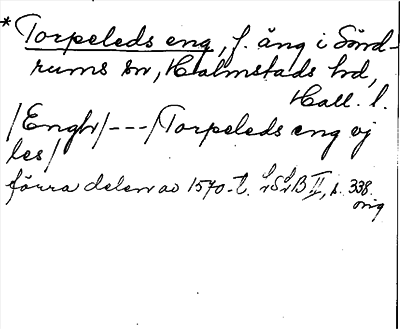 * Torpeleds eng, f. äng i Sönd-
rums sn, Halmstads hd,
Hall. l.
/Engh/---/Torpeleds eng ij
les/
förra delen av 1570-t. S B II, s. 338.
orig